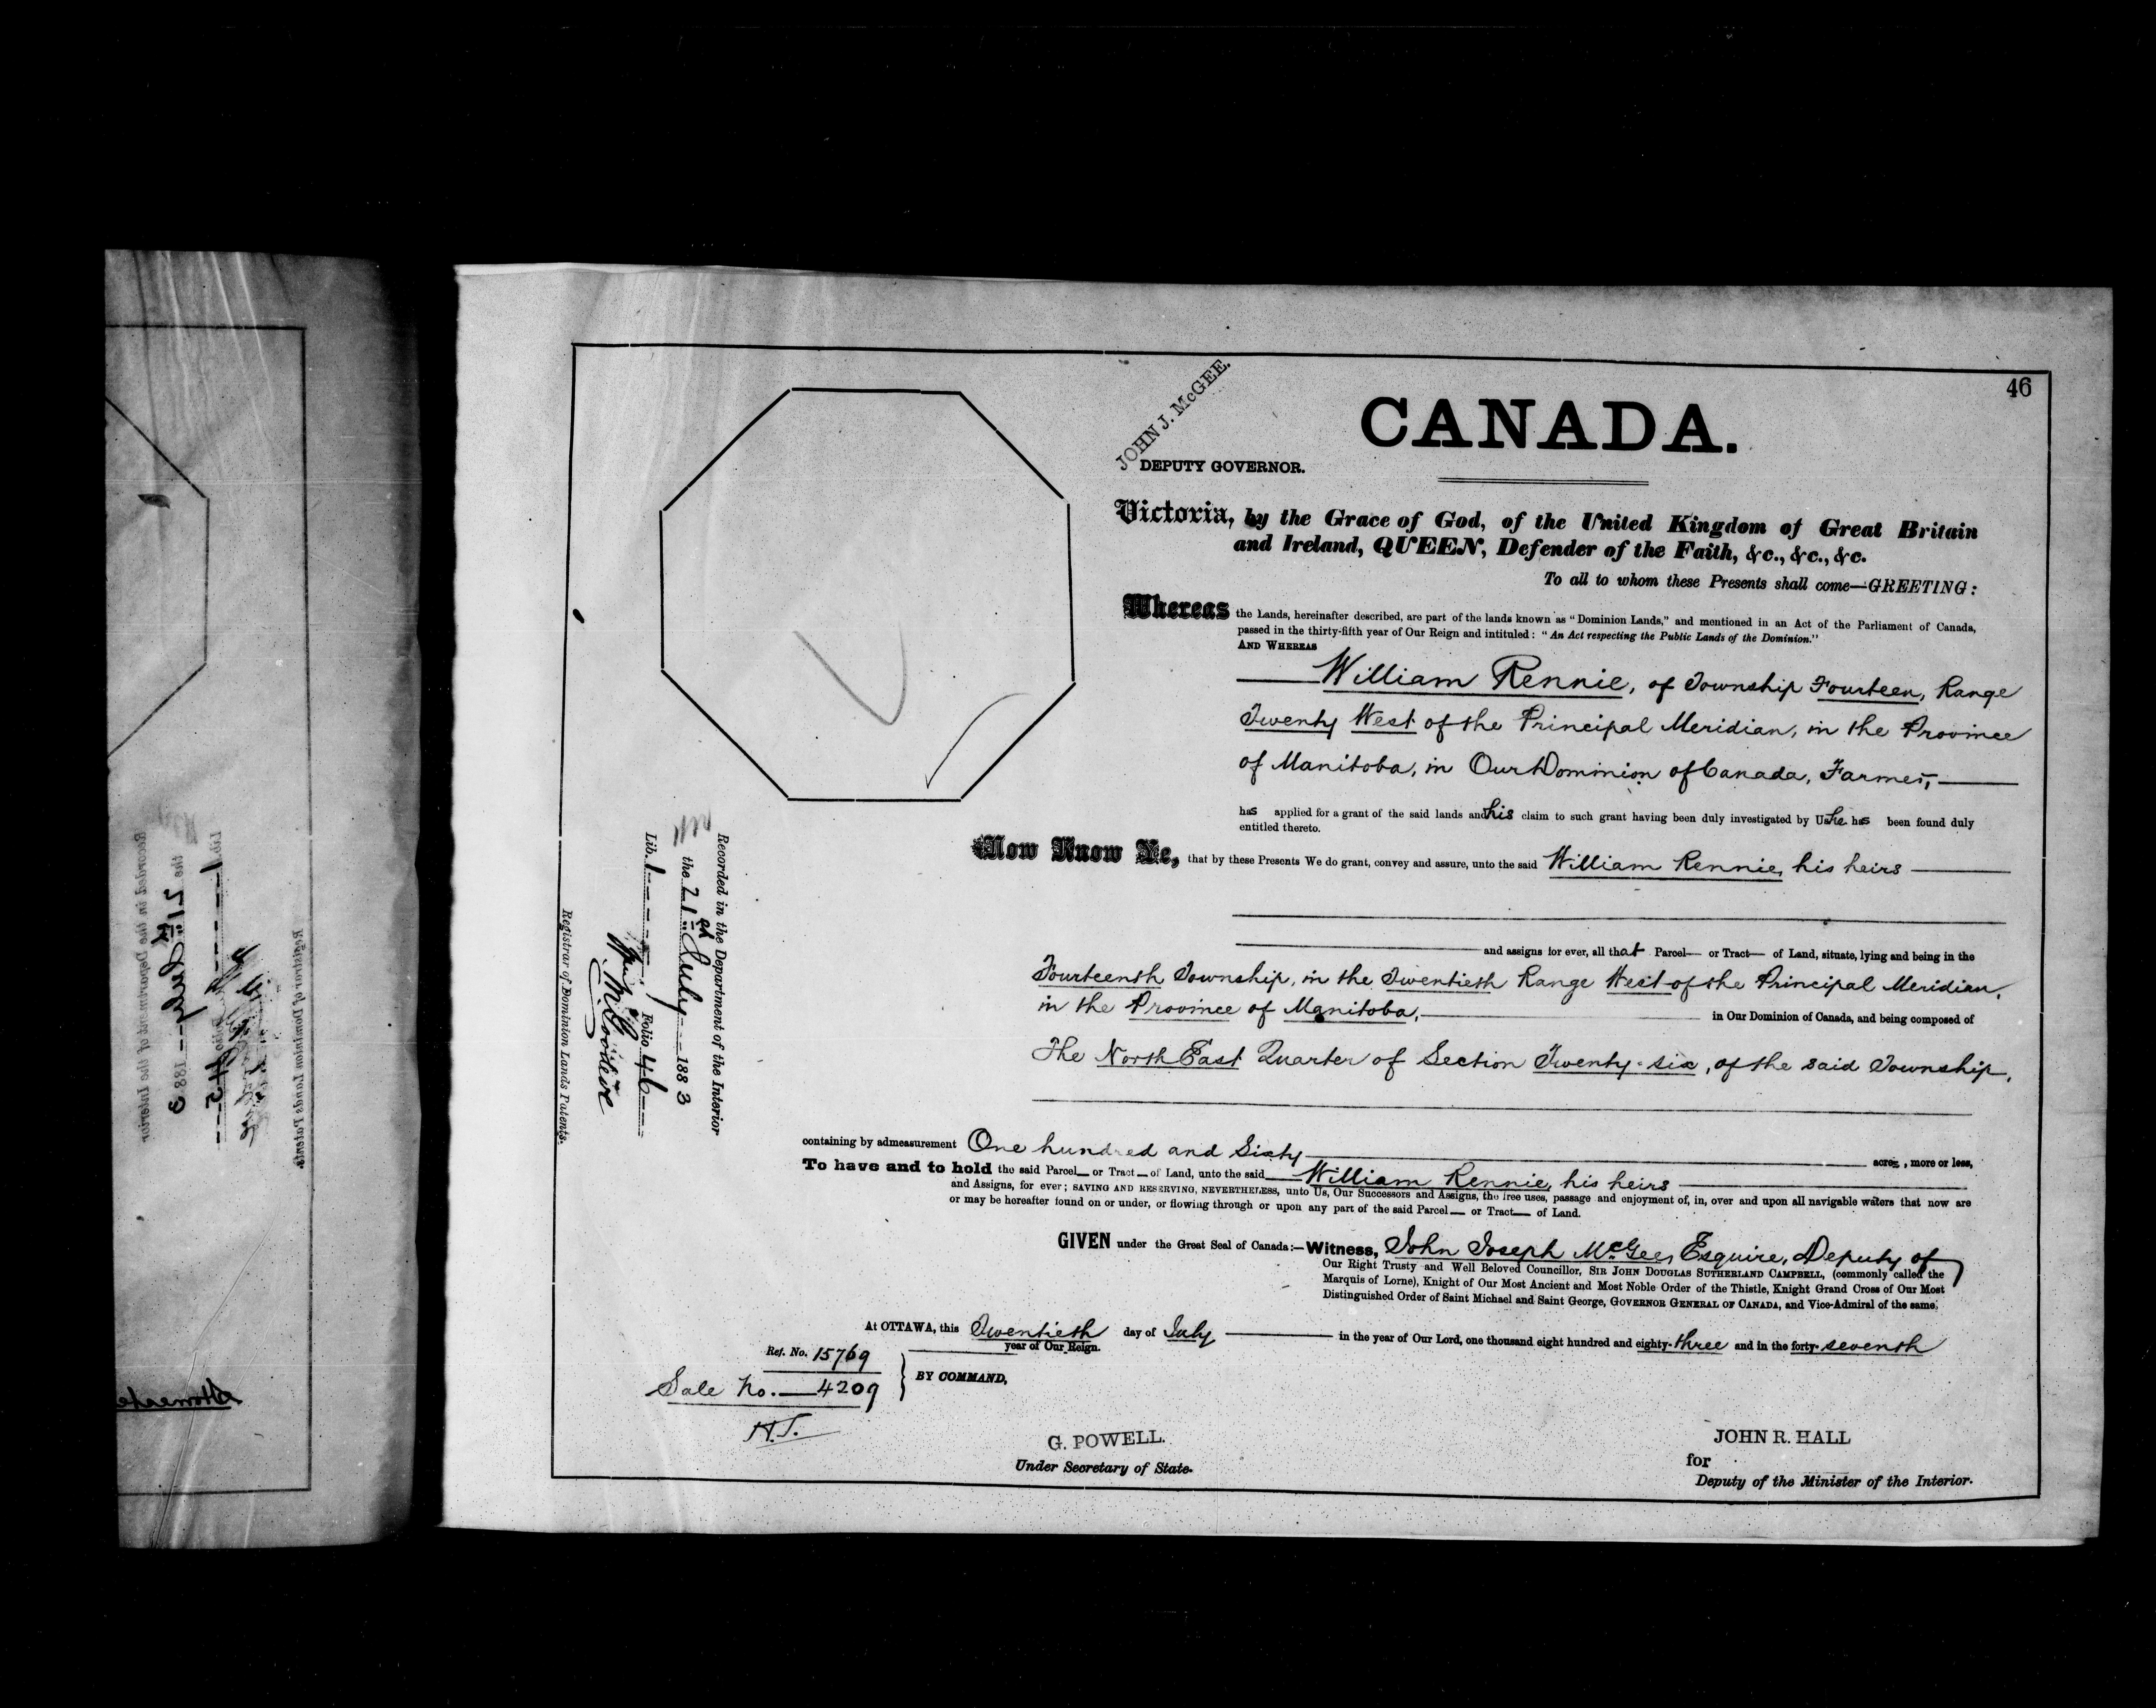 46
JOHN J. McGEE.
DEPUTY GOVERNOR.
CANADA.
Victoria, by the Grace of God, of the United Kingdom of Great Britain
and Ireland, QUEEN, Defender of the Faith, &c., &c., &c.
To all to whom these Presents shall come—GREETING:
Whereas the Lands, hereinafter described, are part of the lands known as "Dominion Lands," and mentioned in an Act of the Parliament of Canada,
passed in the thirty-fifth year of Our Reign and intituled: "An Act respecting the Public Lands of the Dominion."
AND WHEREAS
William Rennie, of Township Fourteen, Range
Twenty West of the Principal Meridian, in the Province
of Manitoba, in Our Dominion of Canada, Farmer,
has applied for a grant of the said lands and his claim to such grant having been duly investigated by Us he has been found duly
entitled thereto.
Now Know Ye, that by these Presents We do grant, convey and assure, unto the said William Rennie, his heirs
and assigns for ever, all that Parcel— or Tract— of Land, situate, lying and being in the
Fourteenth Township, in the Twentieth Range West of the Principal Meridian,
in the Province of Manitoba, in Our Dominion of Canada, and being composed of
The North East Quarter of Section Twenty-six, of the said Township,
containing by admeasurement One hundred and Sixty acres, more or less,
To have and to hold the said Parcel— or Tract— of Land, unto the said William Rennie, his heirs
and Assigns, for ever; SAVING AND RESERVING, NEVERTHELESS, unto Us, Our Successors and Assigns, the free uses, passage and enjoyment of, in, over and upon all navigable waters that now are
or may be hereafter found on or under, or flowing through or upon any part of the said Parcel— or Tract— of Land.
GIVEN under the Great Seal of Canada:—Witness, John Joseph McGee, Esquire, Deputy of
Our Right Trusty and Well Beloved Councillor, SIR JOHN DOUGLAS SUTHERLAND CAMPBELL, (commonly called the
Marquis of Lorne), Knight of Our Most Ancient and Most Noble Order of the Thistle, Knight Grand Cross of Our Most
Distinguished Order of Saint Michael and Saint George, GOVERNOR GENERAL OF CANADA, and Vice-Admiral of the same.
At OTTAWA, this Twentieth day of July in the year of Our Lord, one thousand eight hundred and eighty-three and in the forty-seventh
year of Our Reign.
Ref. No. 15769
Sale No.—4209
H.J.
BY COMMAND,
G. POWELL.
Under Secretary of State.
JOHN R. HALL
for
Deputy of the Minister of the Interior.
Recorded in the Department of the Interior
the 21st July 1883
Lib. 1 Folio 46
Registrar of Dominion Lands Patents.
Recorded in the Department of the Interior
the 21st July 1883
Lib. 1 Folio 45
Registrar of Dominion Lands Patents.